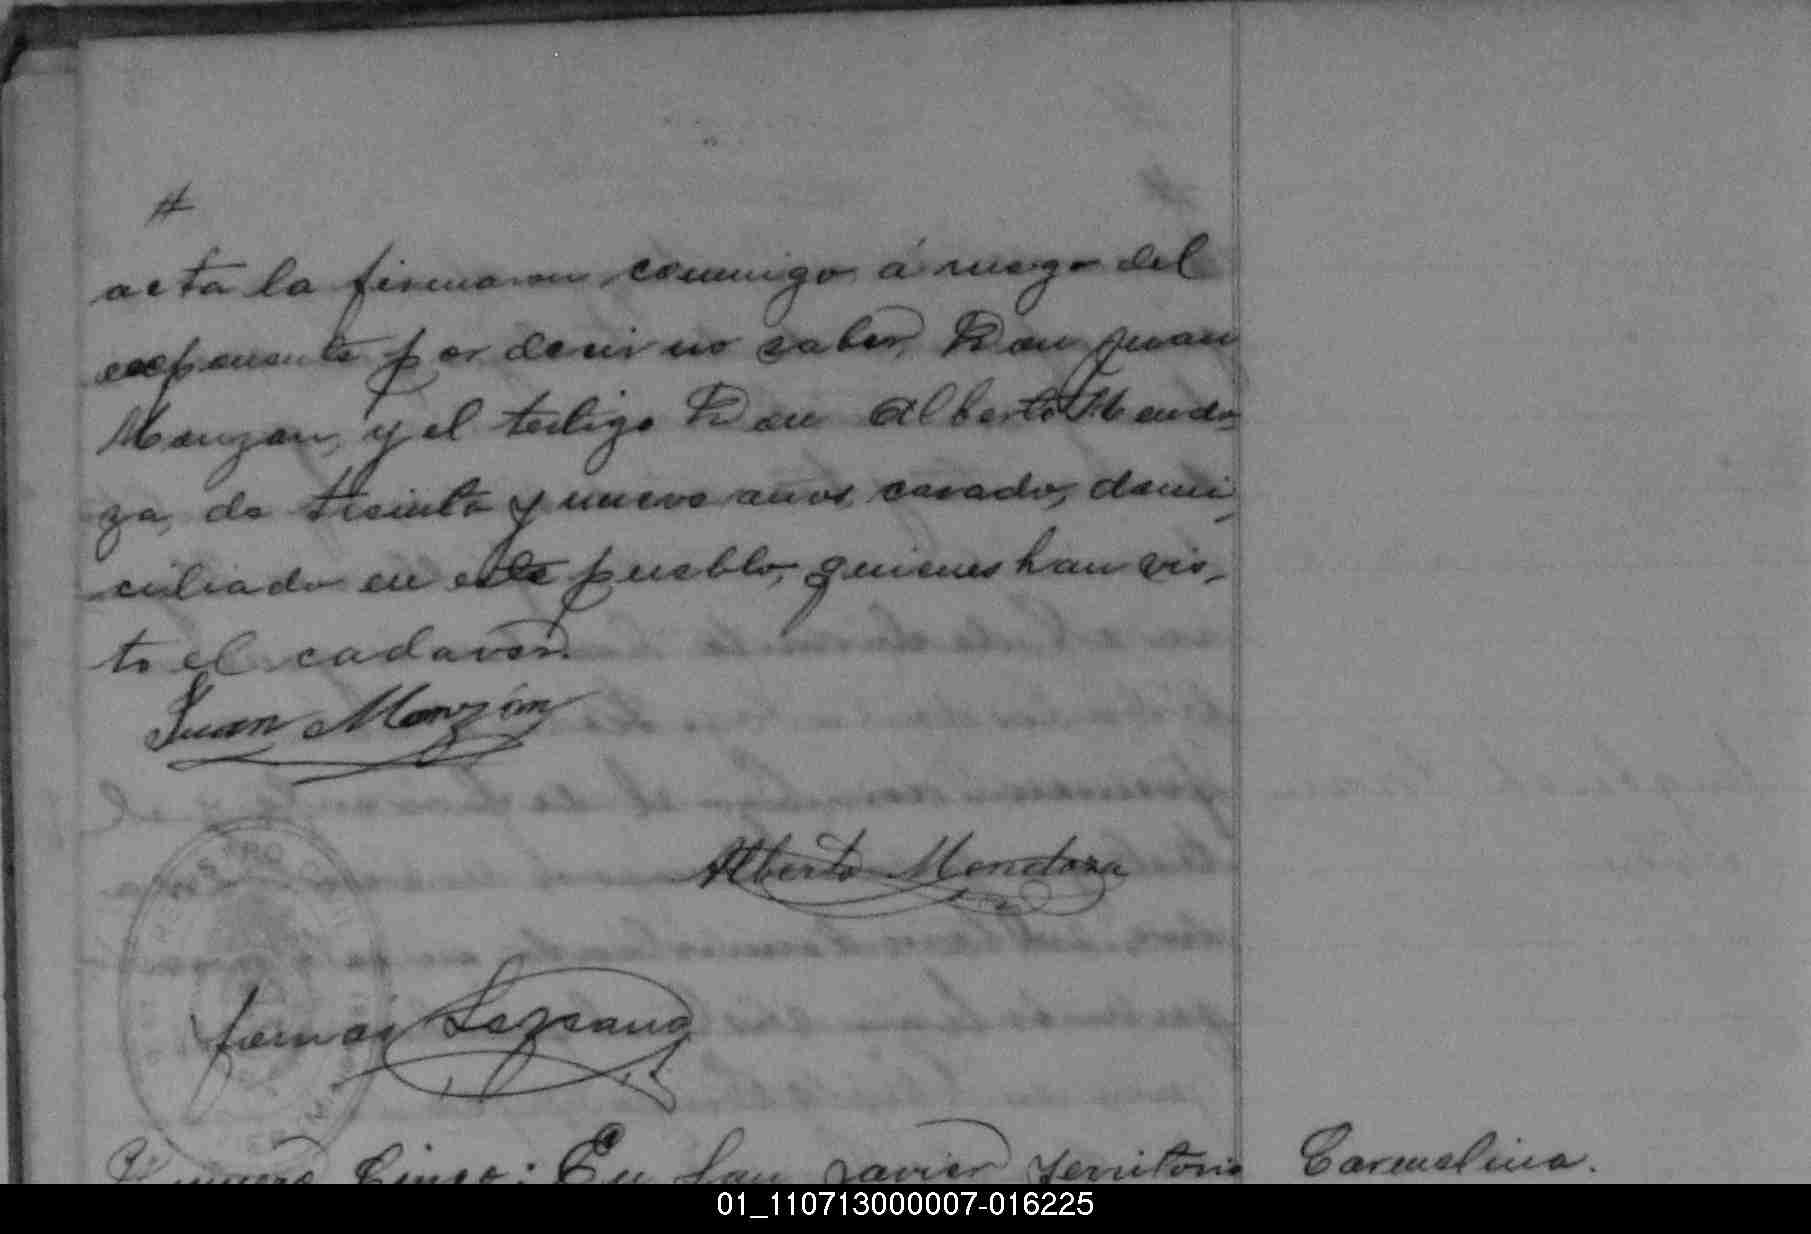 #
acta la firmaron conmigo á ruego del
exponente por decir no saber, Don Juan
Manzan, y el testigo Don Alberto Mendo-
za, de treinta y nueve años, casado, domi-
ciliado en este pueblo, quienes han vis-
to el cadaver.
Juan Manzón
Alberto Mendoza
Tomas Lezcano
Numero Cinco: En San Javier Territorio
Carmelina.
01_110713000007-016225